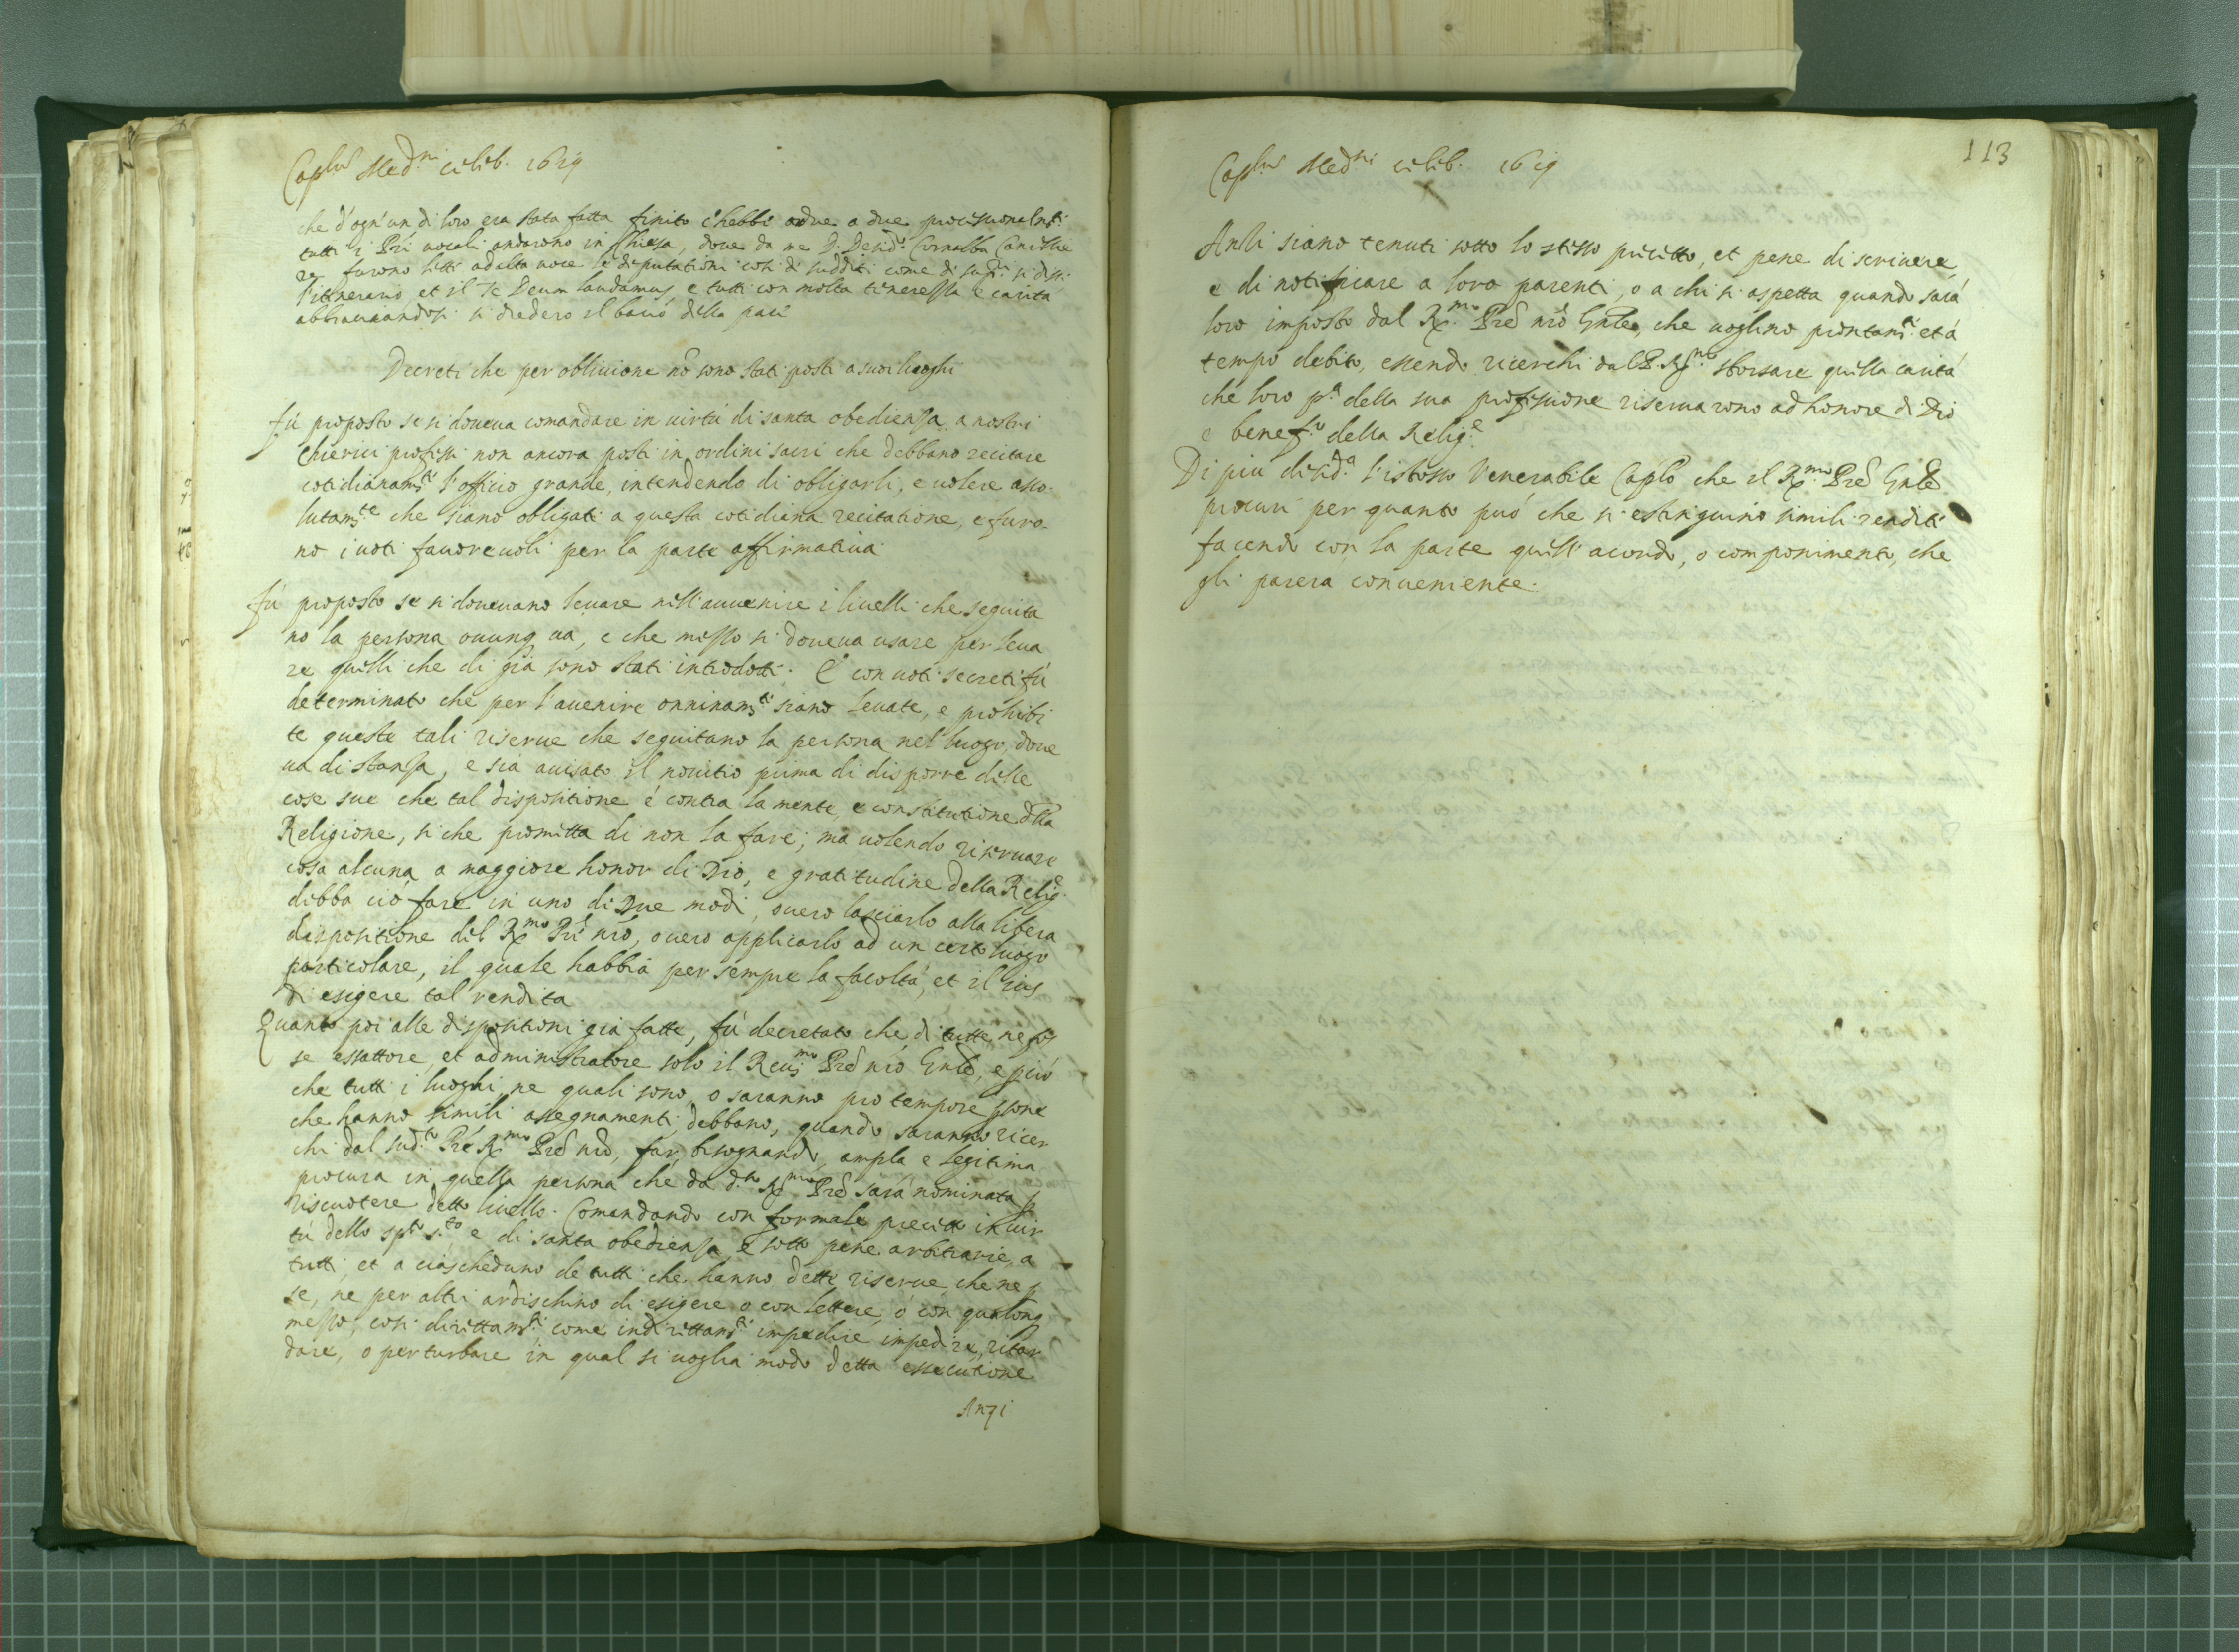 Caplũ Med.ni celeb. 1619
che d'ogn'un di loro era stata fatta finito c'hebbe a due a due procissionalmte.
tutti i Pri uocali andarono in Chiesa, doue da me D. Desid.o Cornalba Cancellie
re furono letti ad alta uoce le deputationi così di sudditi come di si disse
l'itinerario et il Te Deum laudamus e tutti con molta tenerezza e carità
abbracciandosi si diedero il bació della pace
Decreti che per obliuione nõ sono stati posti a suoi luoghi
fú proposto se si doueua comandare in uirtú di santa obedienza a nostri
Chierici professi non ancora posti in ordini sacri che debbano recitare
cotidianamte l'officio grande, intendendo di obligarli, e uolere asso-
lutamte che siano obligati a questa cotidiana recitatione, e furo
no i uoti fauoreuoli per la parte affirmatiua
fú proposto se si doueuano leuare nell'auuenire i liuelli che seguita
no la persona ouunq ua, e che mezzo si doueua usare per leua
re quelli che di già sono stati introdotti. E con uoti secreti fú
determinato che per l'auenire onninamte siano leuate, e prohibi
te queste tali riserue che seguitano la persona nel luogo, doue
ua di stanza, e sia auisato il nouitio prima di disporre delle
cose sue che tal dispositione é contra la mente, e constitutione dlla
Religione, si che prometta di non la fare; ma uolendo riseruare
cosa alcuna a maggiore honor di Dio, e gratitudine della Relig.e
debba ció fare in uno di Due modi, ouero lasciarlo alla libera
dispositione del Rmo Prẽ nrõ, ouero applicarlo ad un certo luogo
particolare, il quale habbia per sempre la facoltá, et il ius
di esigere tal rendita
Quanto poi alle dispositioni giá fatte, fú decretato che di tutte ne fos
se essattore, et administratore solo il Reu.mo Prẽ nrõ Gnle, e pció
che tutti i luoghi ne quali sono, o saranno pro tempore psone
che hanno simili assegnamenti debbano, quando saranno ricer
chi dal sud.to Prẽ Rmo Prẽ nrõ, far, bisognando, ampla e legitima
procura in quella persona che da d.to Rmo Prẽ sará nominata p
riscuotere detto liuello. Comandando con formale precetto in uir
tú dello spt.o s.to e di santa obedienza, e sotto pene arbitrarie, a
tutti, et a ciascheduno de tutti che hanno dette riserue, che ne p
se, ne per altri ardischino di esigere o con lettere, ó con qualonq
mezzo, cosi direttamte come indirettamte impedire impedire, ritar
dare, o perturbare in qual si uoglia modo detta essecutione
Anzi
113
Caplũ Med.ni celeb. 1619
Anzi siano tenuti sotto lo stesso precetto, et pene di scriuere,
e di notificare a loro parenti, o a chi si aspetta quando sará
loro imposto dal Rmo Prẽ nrõ Gnle, che uoglino prontamte et á
tempo debito, essendo ricerchi dal P. Rmo sborsare quella caritá
che loro p.a della sua professione riseruarono ad honore di Dio
e benef.o della Relig.e
Di piu desid.a l'istesso Venerabile Caplo che il Rmo Prẽ Gnle
procuri per quanto puó che si estinguino simili rendite
facendo con la parte quell'acordo, o componimento, che
gli parerá conueniente.